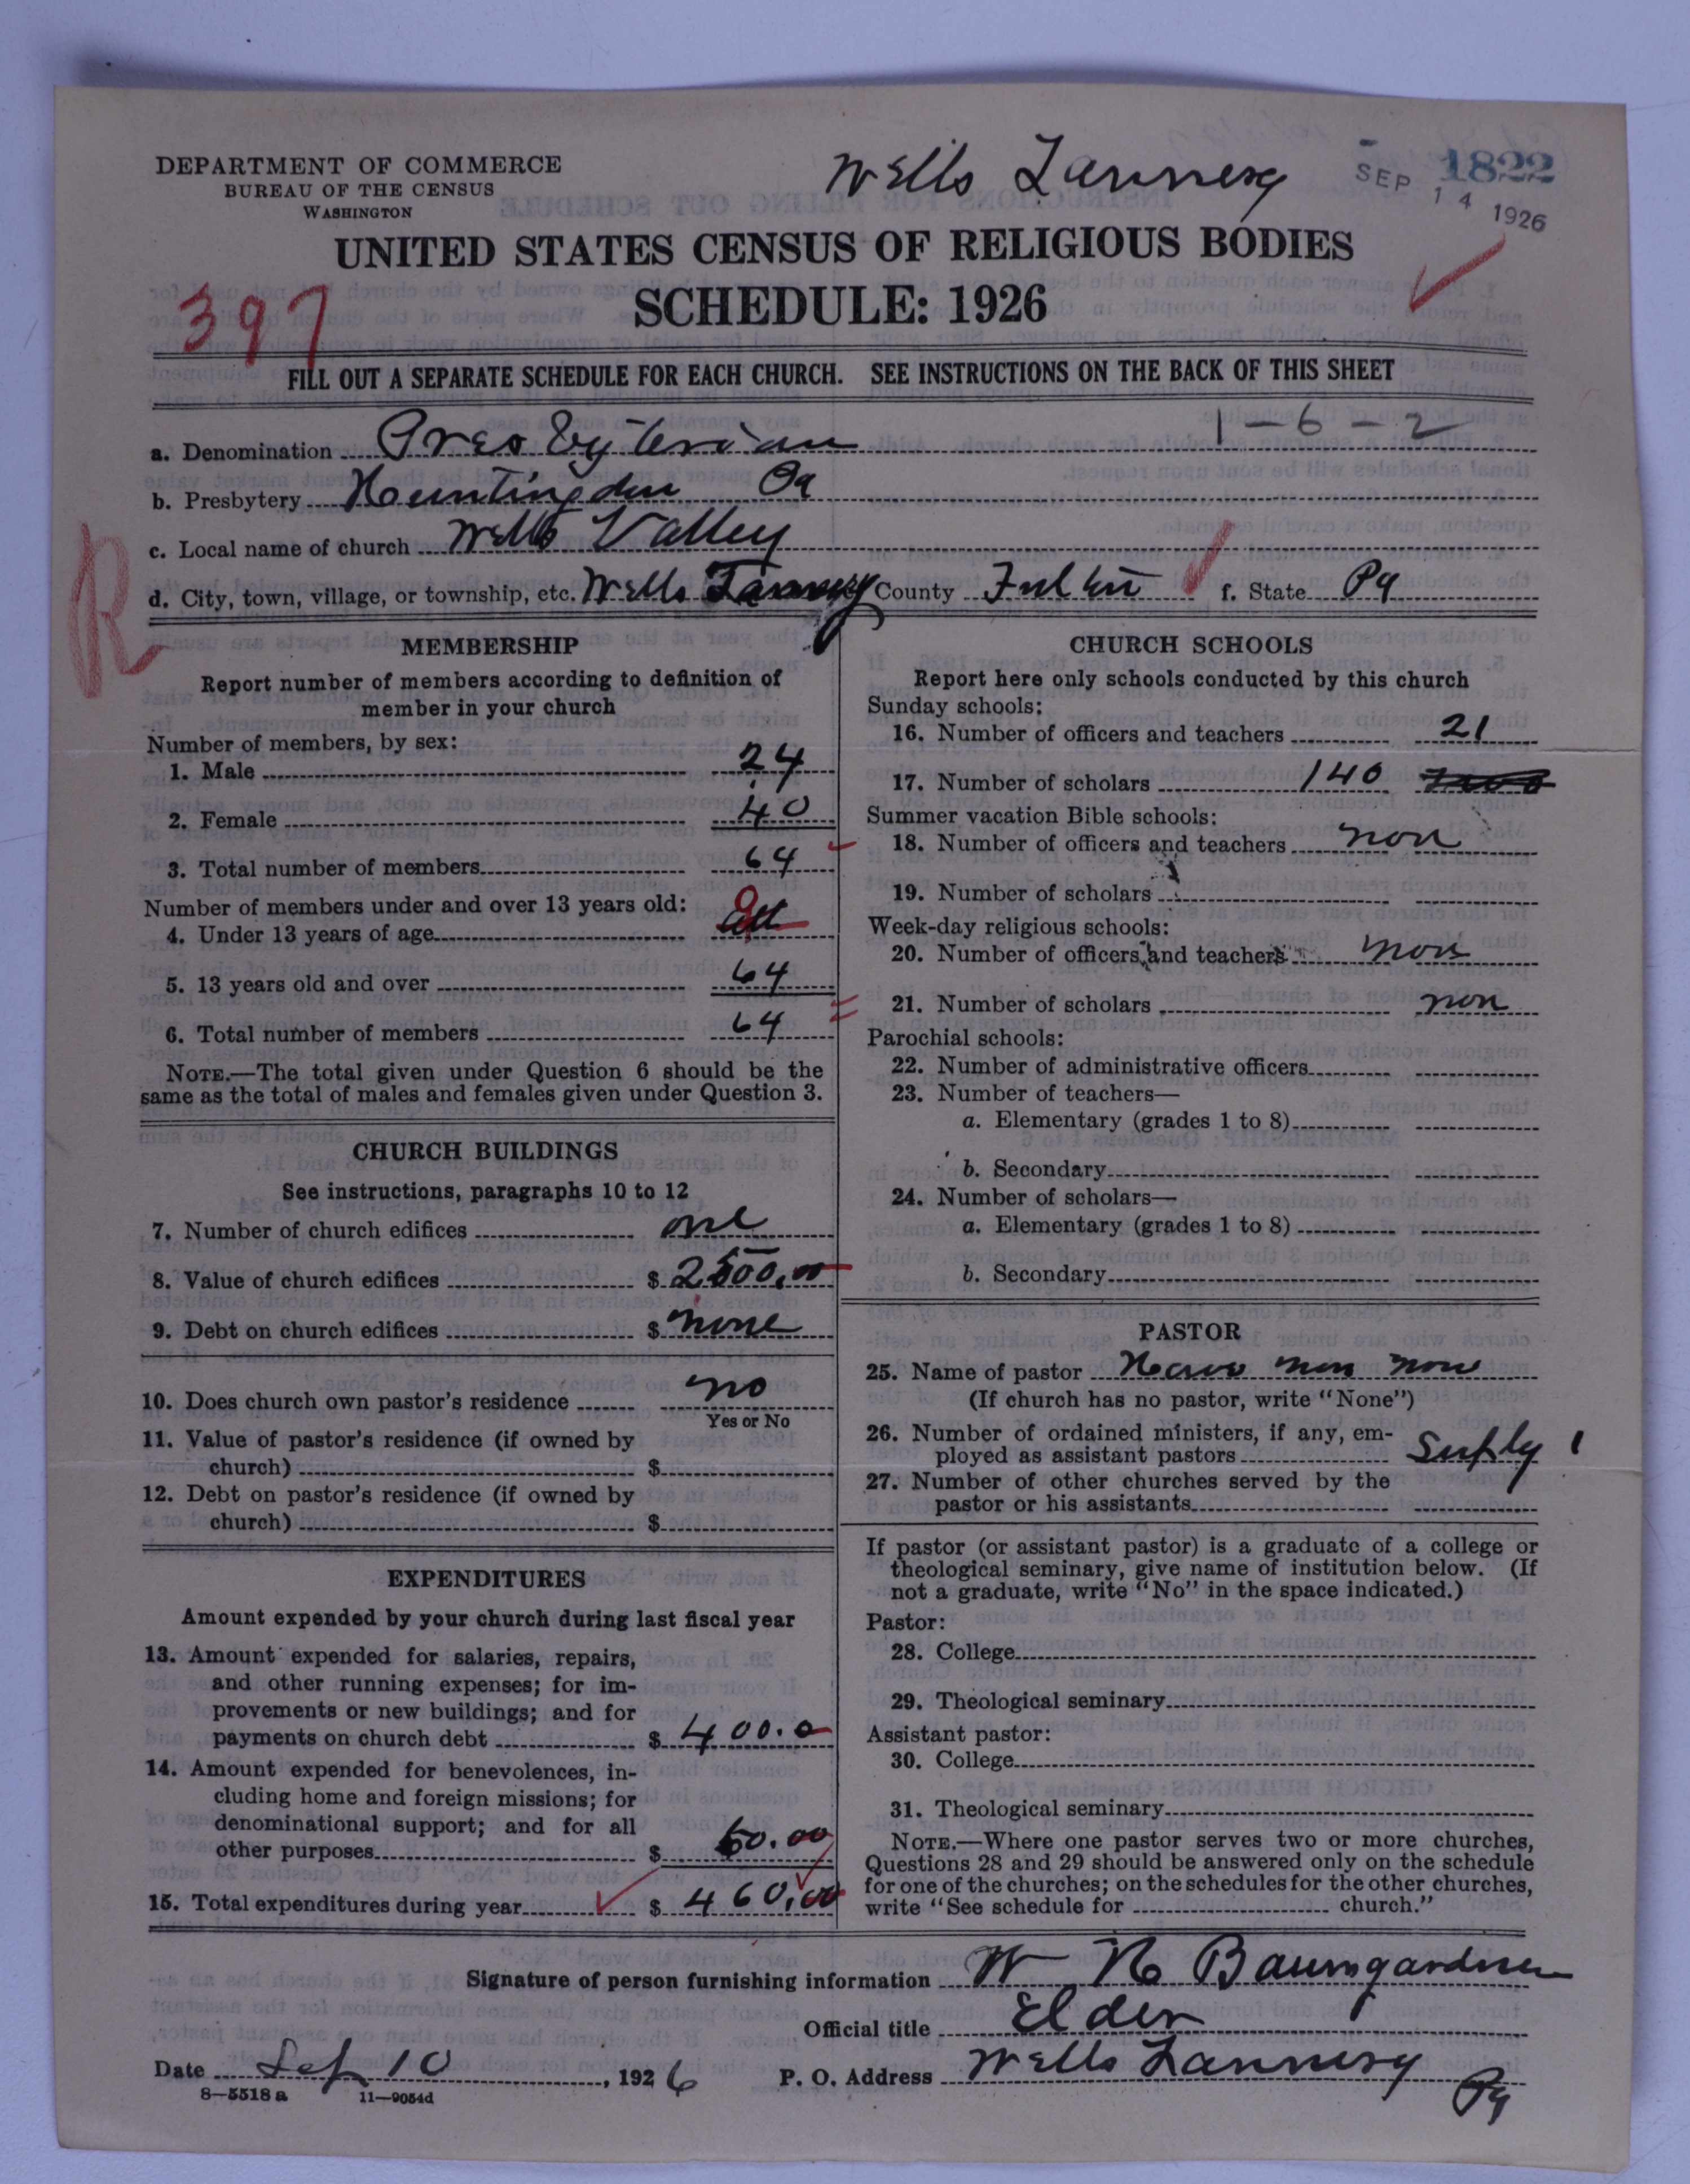 DEPARTMENT OF COMMERCE
BUREAU OF THE CENSUS
WASHINGTON
Wells Tannery
1822
SEP 14 1926
UNITED STATES CENSUS OF RELIGIOUS BODIES
SCHEDULE: 1926
397
FILL OUT A SEPARATE SCHEDULE FOR EACH CHURCH. SEE INSTRUCTIONS ON THE BACK OF THIS SHEET
1-6-2
a. Denomination Presbyterian
b. Presbytery Huntingdon Pa
c. Local name of church Wells Valley
d. City, town, village, or township, etc. Wells Tannery County Fulton f. State Pa
R
MEMBERSHIP
Report number of members according to definition of
member in your church
Number of members, by sex:
1. Male 24
2. Female 40
3. Total number of members 64
Number of members under and over 13 years old:
4. Under 13 years of age 0
5. 13 years old and over 64
6. Total number of members 64
NOTE.—The total given under Question 6 should be the
same as the total of males and females given under Question 3.
CHURCH BUILDINGS
See instructions, paragraphs 10 to 12
7. Number of church edifices one
8. Value of church edifices $ 2500.00
9. Debt on church edifices $ none
10. Does church own pastor's residence no
Yes or No
11. Value of pastor's residence (if owned by
church) $
12. Debt on pastor's residence (if owned by
church) $
EXPENDITURES
Amount expended by your church during last fiscal year
13. Amount expended for salaries, repairs,
and other running expenses; for im-
provements or new buildings; and for
payments on church debt $ 400.0
14. Amount expended for benevolences, in-
cluding home and foreign missions; for
denominational support; and for all
other purposes $ 60.00
15. Total expenditures during year $ 460.00
CHURCH SCHOOLS
Report here only schools conducted by this church
Sunday schools:
16. Number of officers and teachers 21
17. Number of scholars 140
Summer vacation Bible schools:
18. Number of officers and teachers non
19. Number of scholars
Week-day religious schools:
20. Number of officers and teachers non
21. Number of scholars non
Parochial schools:
22. Number of administrative officers
23. Number of teachers—
a. Elementary (grades 1 to 8)
b. Secondary
24. Number of scholars—
a. Elementary (grades 1 to 8)
b. Secondary
PASTOR
25. Name of pastor Have non now
(If church has no pastor, write "None")
26. Number of ordained ministers, if any, em-
ployed as assistant pastors Suply 1
27. Number of other churches served by the
pastor or his assistants
If pastor (or assistant pastor) is a graduate of a college or
theological seminary, give name of institution below. (If
not a graduate, write "No" in the space indicated.)
Pastor:
28. College
29. Theological seminary
Assistant pastor:
30. College
31. Theological seminary
NOTE.—Where one pastor serves two or more churches,
Questions 28 and 29 should be answered only on the schedule
for one of the churches; on the schedules for the other churches,
write "See schedule for church."
Signature of person furnishing information W H Baumgardner
Official title Elder
Date Sep 10, 1926 P. O. Address Wells Tannery
Pa
8—5518 a 11—9054d